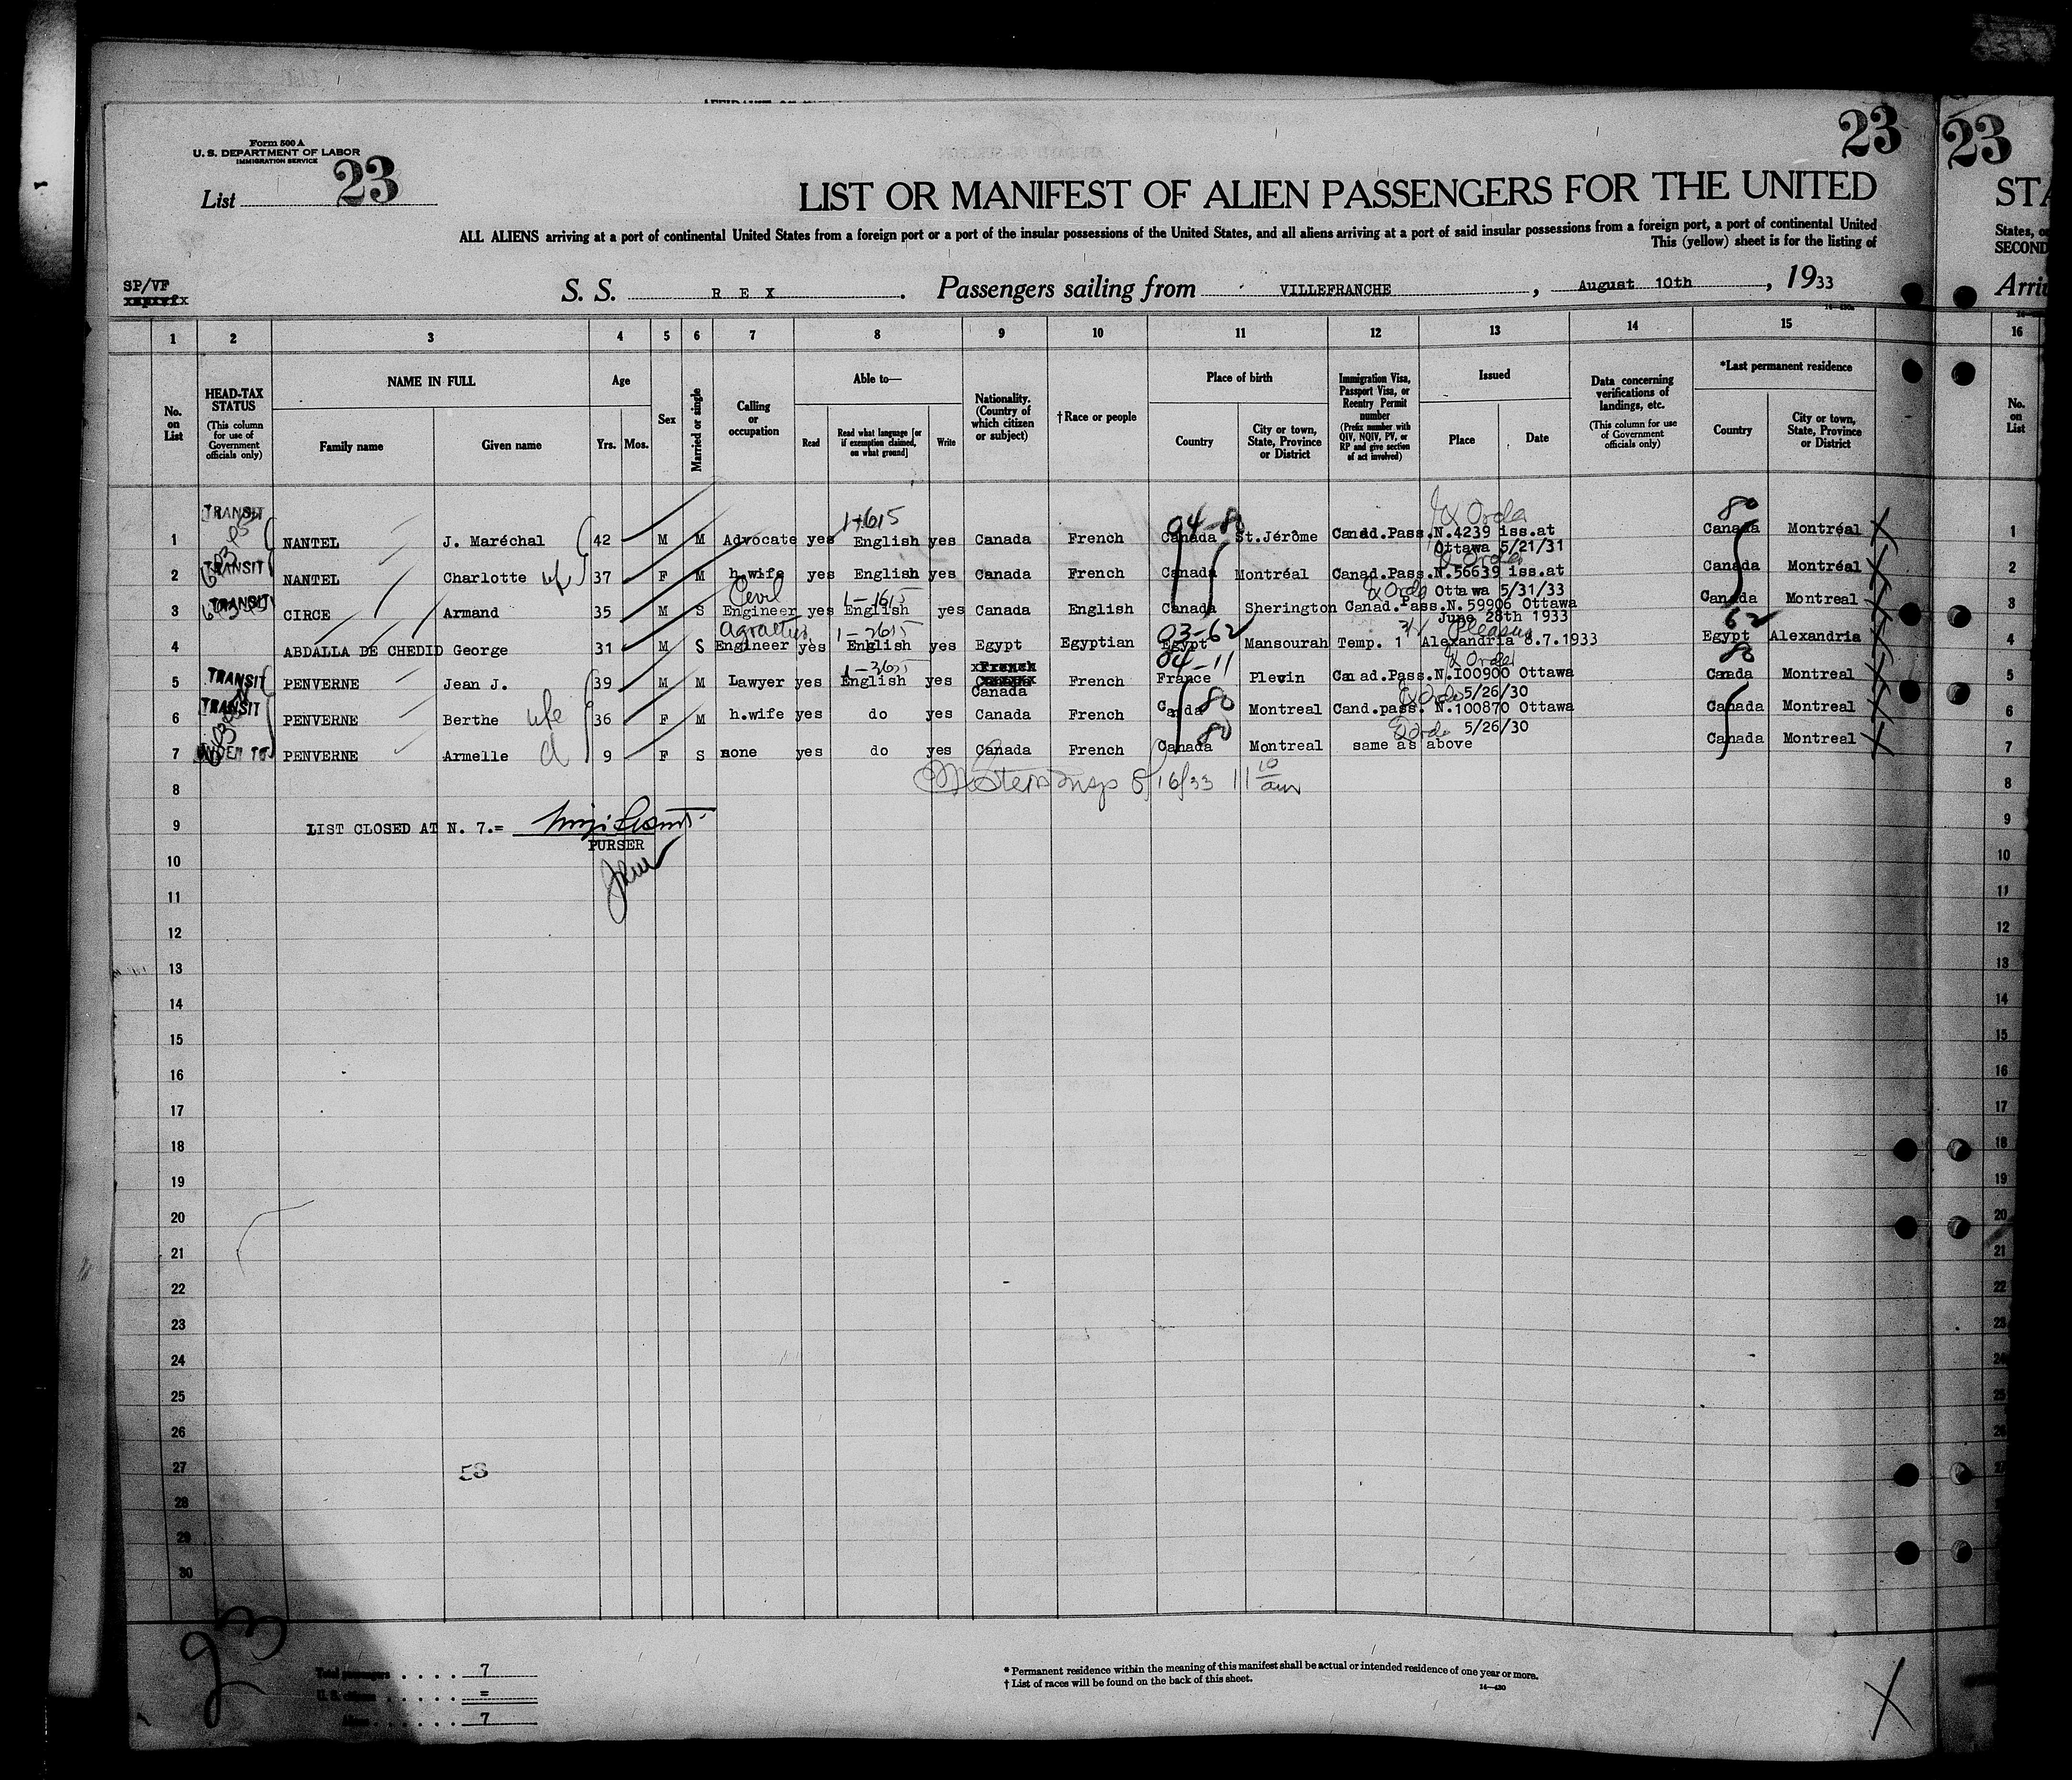 23 23
Form 500 A
U. S. DEPARTMENT OF LABOR
IMMIGRATION SERVICE
List 23
LIST OR MANIFEST OF ALIEN PASSENGERS FOR THE UNITED STA
ALL ALIENS arriving at a port of continental United States from a foreign port or a port of the insular possessions of the United States, and all aliens arriving at a port of said insular possessions from a foreign port, a port of continental United States, o
This (yellow) sheet is for the listing of SECOND
SP/VF
S. S. R E X . Passengers sailing from VILLEFRANCHE , August 10th , 1933 Arri
1 2 3 4 5 6 7 8 9 10 11 12 13 14 15 16
No. on List
HEAD-TAX STATUS (This column for use of Government officials only)
NAME IN FULL
Family name Given name
Age
Yrs. Mos.
Sex
Married or single
Calling or occupation
Able to—
Read Read what language [or if exemption claimed, on what ground] Write
Nationality. (Country of which citizen or subject)
† Race or people
Place of birth
Country City or town, State, Province or District
Immigration Visa, Passport Visa, or Reentry Permit number (Prefix number with QIV, NQIV, PV, or RP and give section of act involved)
Issued
Place Date
Data concerning verifications of landings, etc. (This column for use of Government officials only)
*Last permanent residence
Country City or town, State, Province or District
No. on List
TRANSIT 1-1615 04-80 80
1 NANTEL J. Maréchal 42 M M Advocate yes English yes Canada French Canada St.Jérôme Canad.Pass.N.4239 iss.at Canada Montréal X 1
Ottawa 5/21/31
TRANSIT
2 NANTEL Charlotte wf 37 F M h.wife yes English yes Canada French Canada Montréal Canad.Pass.N.56639 iss.at Canada Montréal X 2
Ottawa 5/31/33
TRANSIT Civil 1-1615
3 CIRCE Armand 35 M S Engineer yes English yes Canada English Canada Sherington Canad.Pass.N.59906 Ottawa Canada Montreal X 3
June 28th 1933
1-2615 03-62 62
4 ABDALLA DE CHEDID George 31 M S Engineer yes English yes Egypt Egyptian Egypt Mansourah Temp. 1 Alexandria 8.7.1933 Egypt Alexandria X 4
TRANSIT French 04-11 80
5 PENVERNE Jean J. 39 M M Lawyer yes English yes Canada French France Plevin Canad.Pass.N.I00900 Ottawa Canada Montreal X 5
5/26/30
TRANSIT 80
6 PENVERNE Berthe wfe 36 F M h.wife yes do yes Canada French Canada Montreal Cand.pass. N.100870 Ottawa Canada Montreal X 6
5/26/30
80
7 PENVERNE Armelle d 9 F S none yes do yes Canada French Canada Montreal same as above Canada Montreal X 7
8 Insp 8/16/33 11 10 am 8
9 LIST CLOSED AT N. 7.= 9
PURSER
10 10
11 11
12 12
13 13
14 14
15 15
16 16
17 17
18 18
19 19
20 20
21 21
22 22
23 23
24 24
25 25
26 26
27 53
28
29
30
23
Total passengers 7
U. S. citizens =
Aliens 7
* Permanent residence within the meaning of this manifest shall be actual or intended residence of one year or more.
† List of races will be found on the back of this sheet.
14—430
X